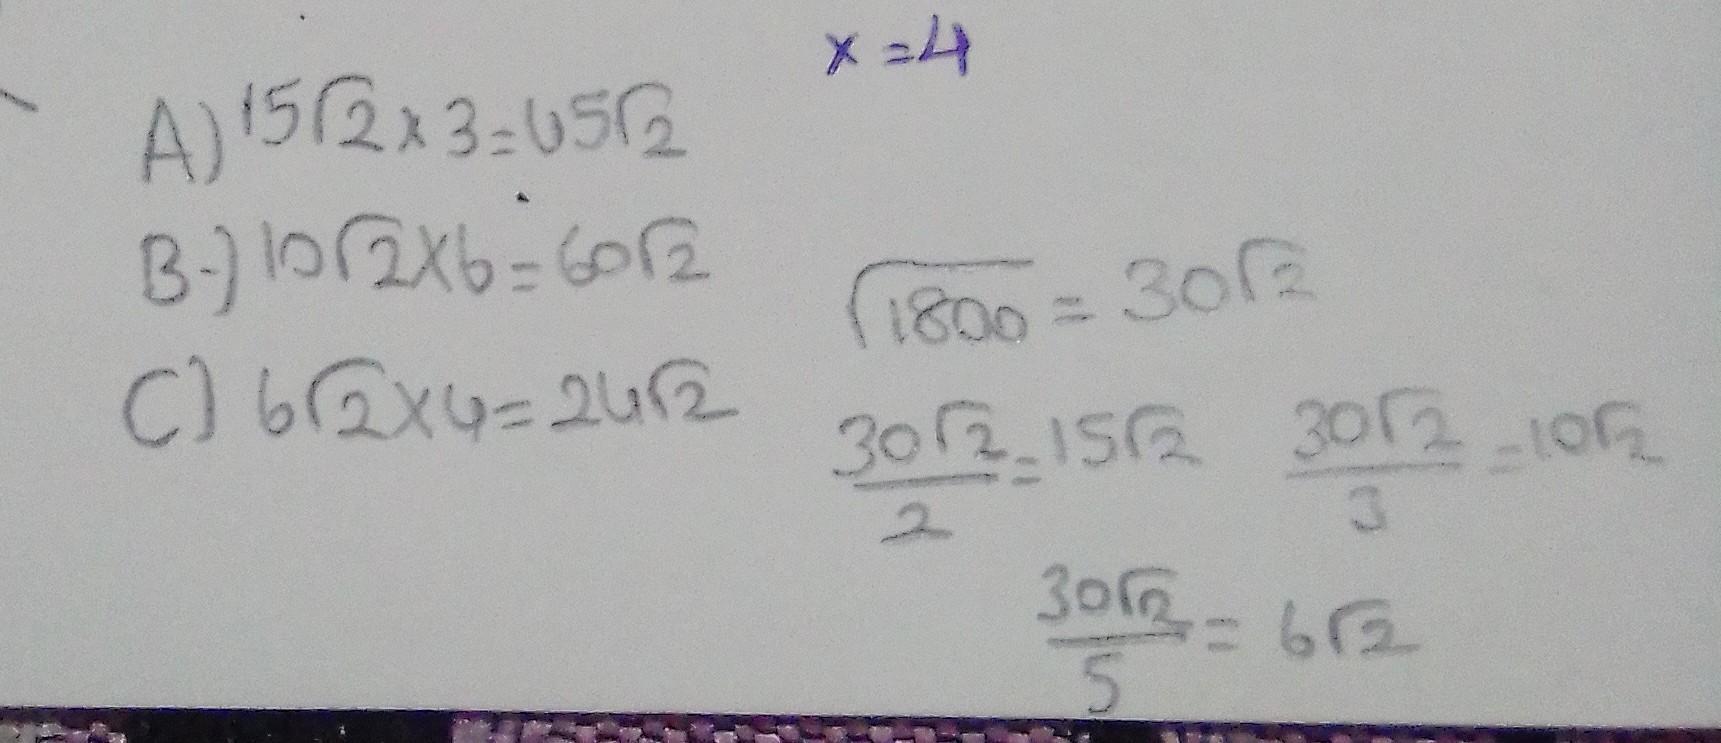 x = 4
A) 15√2 x 3 = 45√2
B-) 10√2 x 6 = 60√2
C) 6√2 x 4 = 24√2
√1800 = 30√2
30√2/2 = 15√2
30√2/3 = 10√2
30√2/5 = 6√2